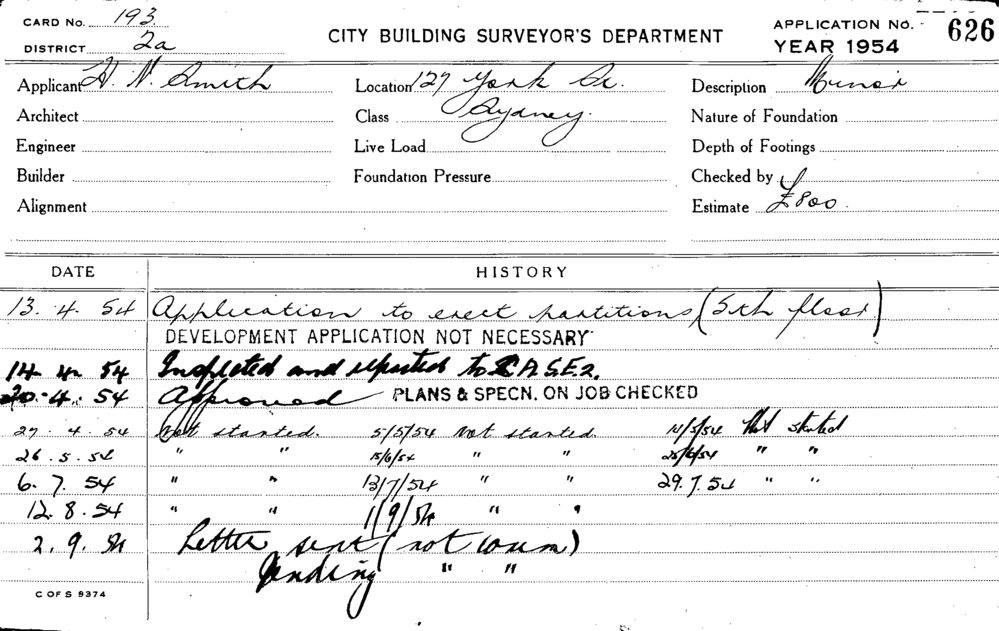 CARD No. 193
DISTRICT 2a
CITY BUILDING SURVEYOR'S DEPARTMENT
APPLICATION No. 626
YEAR 1954
Applicant H. N. Smith
Location 127 York St.
Description Minor
Architect
Class Sydney.
Nature of Foundation
Engineer
Live Load
Depth of Footings
Builder
Foundation Pressure
Checked by
Alignment
Estimate £800.
DATE HISTORY
13. 4. 54 Application to erect partitions (5th floor)
DEVELOPMENT APPLICATION NOT NECESSARY
14. 4. 54 Inspected and reported to
20. 4. 54 Approved PLANS & SPECN. ON JOB CHECKED
27. 4. 54 Not started. 5/5/54 Not started. Not started
26. 5. 54 " " 15/6/54 " " 25/6/54 " "
6. 7. 54 " " 13/7/54 " " 29.7.54 " "
12. 8. 54 " " 1/9/54 " "
2. 9. 54 Letter sent (not comm)
Pending " "
C OF S 9374